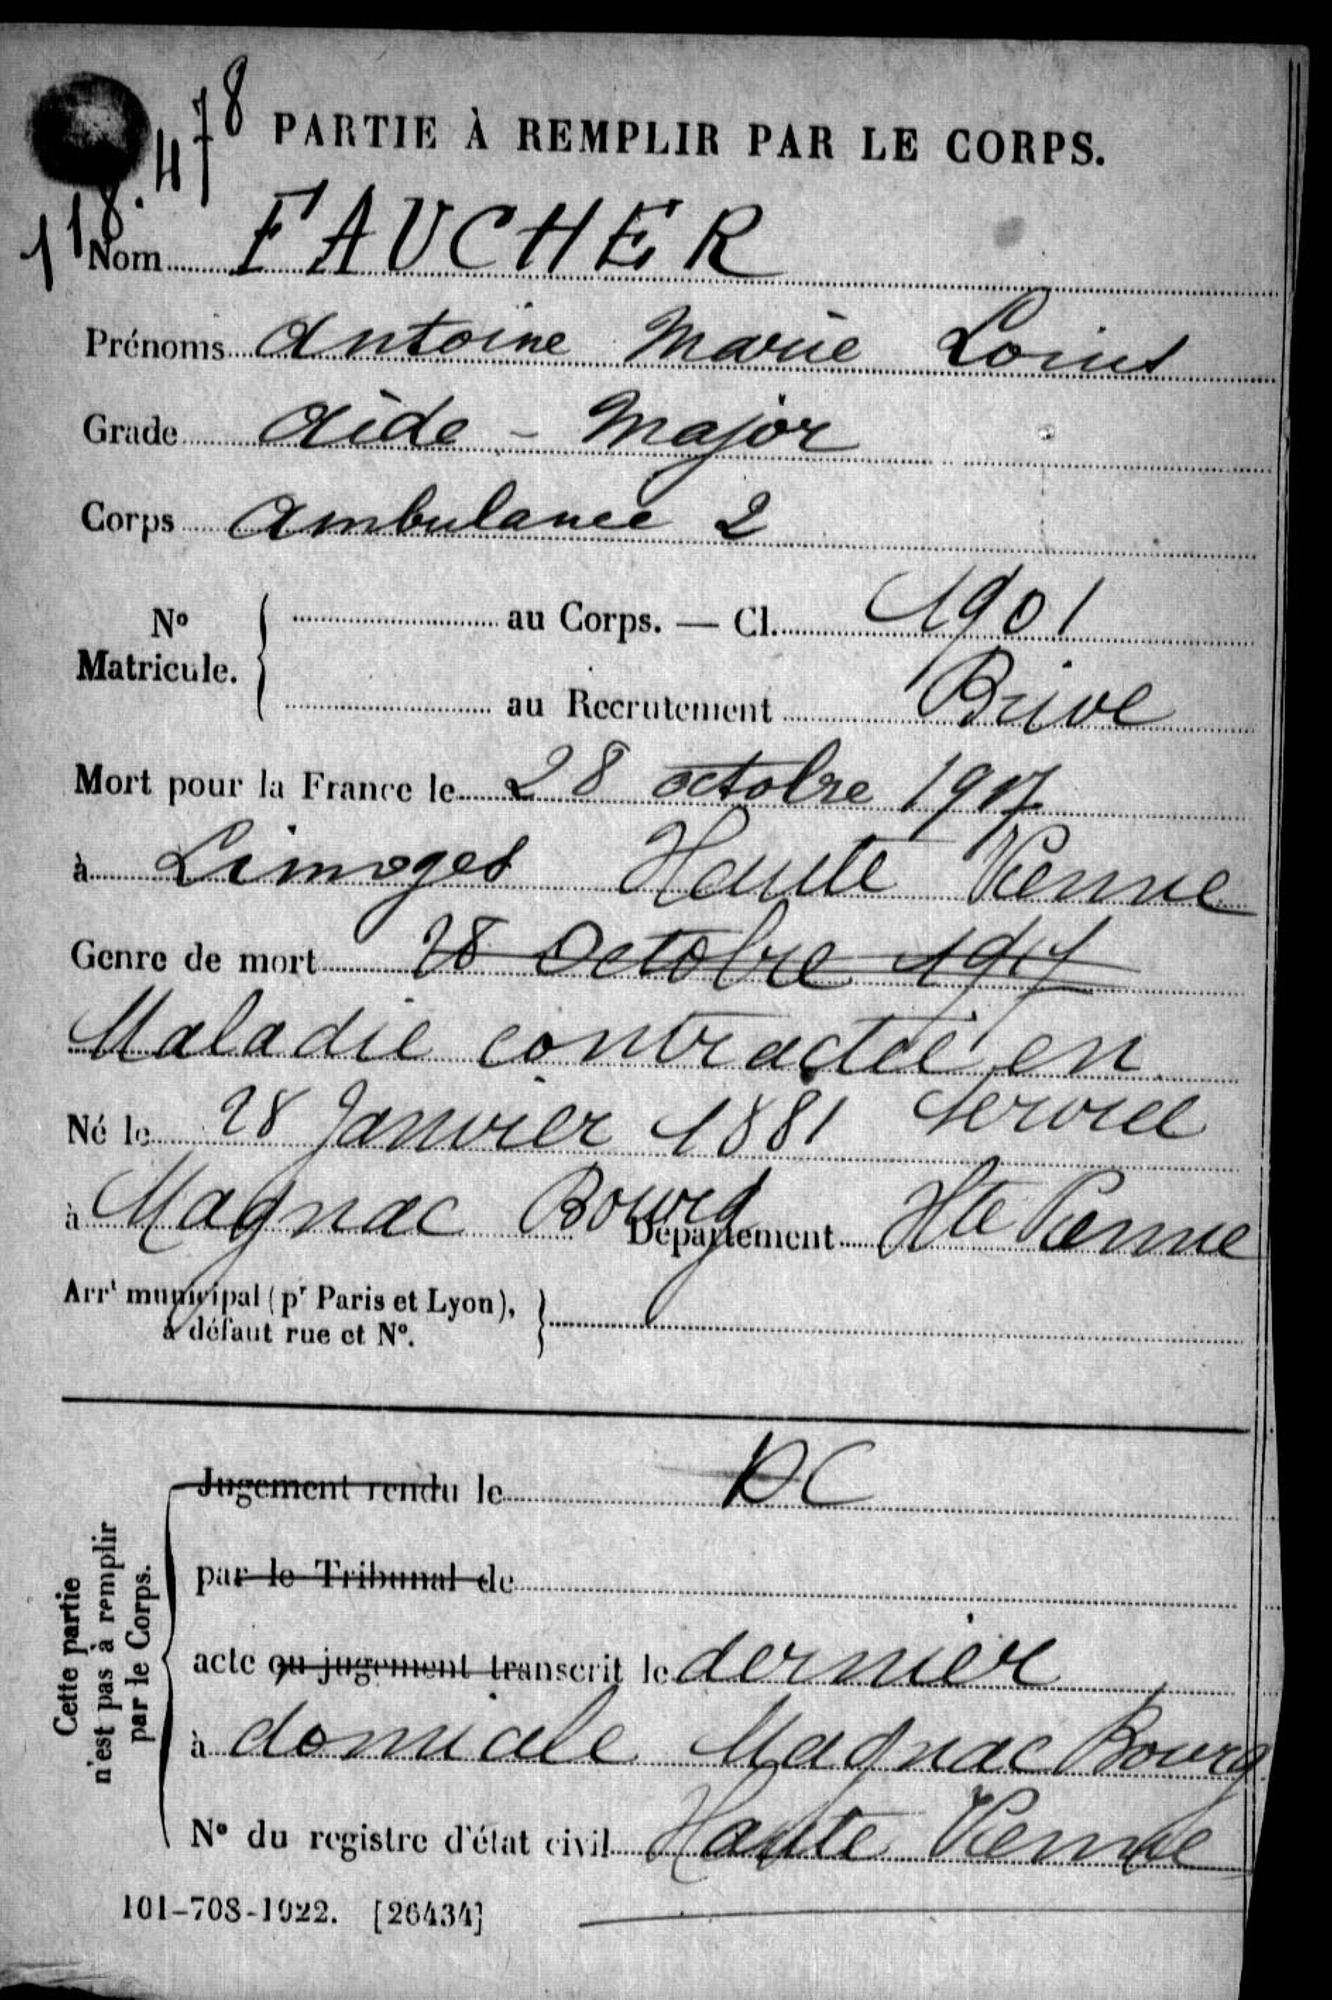 118.478
PARTIE À REMPLIR PAR LE CORPS.
Nom FAUCHER
Prénoms Antoine Marie Louis
Grade Aide - Major
Corps Ambulance 2
N° Matricule. au Corps. — Cl. 1901
au Recrutement Brive
Mort pour la France le 28 octobre 1917
à Limoges Haute Vienne
Genre de mort 28 Octobre 1917
Maladie contractée en
service
Né le 28 Janvier 1881
à Magnac Bourg Département Hte Vienne
Arrt municipal (pr Paris et Lyon),
à défaut rue et N°.
Cette partie
n'est pas à remplir
par le Corps.
Jugement rendu le DC
par le Tribunal de
acte ou jugement transcrit le dernier
à domicile Magnac Bourg
N° du registre d'état civil Haute Vienne
101-708-1922. [26434]